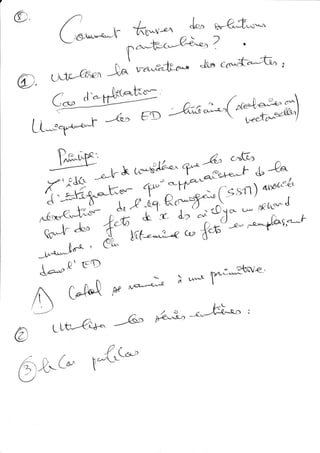 ⑤.
Comment trouver des solutions
particulières ?
①. Utiliser la variation des constantes :
Cas d'application
Uniquement les ED linéaires (scalaires ou
vectorielles)
Principe :
L'idée est de considérer que les cstes
d'intégration qui apparaissent ds la
résolution de l'éq. homogène (SSM) associée
sont des fcts de x ds où il y a un second
membre. On détermine ces fcts en remplaçant
dans l'ED
⚠ Calcul se ramène à une primitive.
② Utiliser les séries entières :
③ le Cas